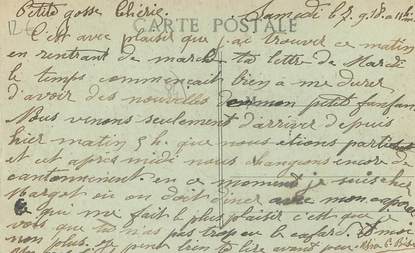 Petite gosse Chérie. Samedi le 7. 9. 18. a 11h
CARTE POSTALE
C'est avec plaisir que j'ai trouver ce matin
en rentrant de march ta lettre de Mardi
le temps commençait bien a me durer
d'avoir des nouvelles de mon petit fanfan.
Nous venons seulement d'arriver depuis
hier matin 5 h. que nous etions partis
et cet après midi nous changeons encore de
cantonnement. en ce moment je suis chez
Marget ou on doit diner avec mon
ce qui me fait le plus plaisir c'est que je
vois que tu n'as pas trop eu le cafard. Et moi
non plus. Je peut bien te lire avant